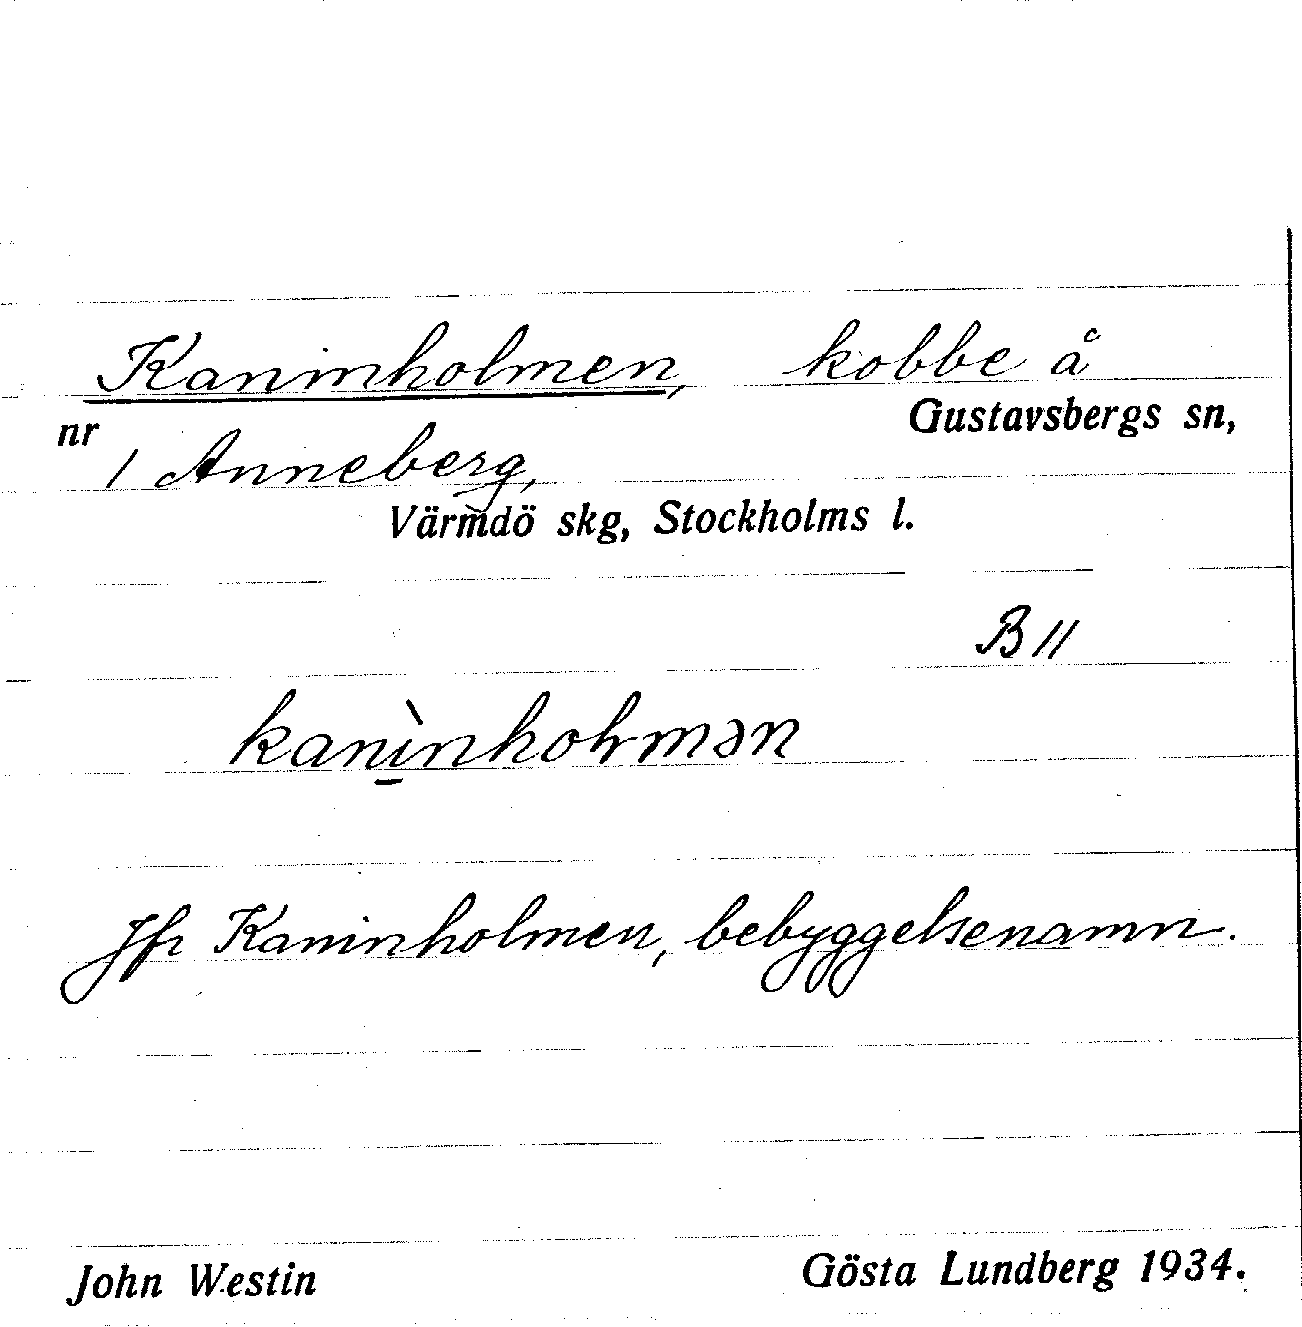 Kaninholmen, kobbe å
nr Gustavsbergs sn,
1 Anneberg,
Värmdö skg, Stockholms l.
B 11
kanìnholmən
Jfr Kaninholmen, bebyggelsenamn.
John Westin Gösta Lundberg 1934.